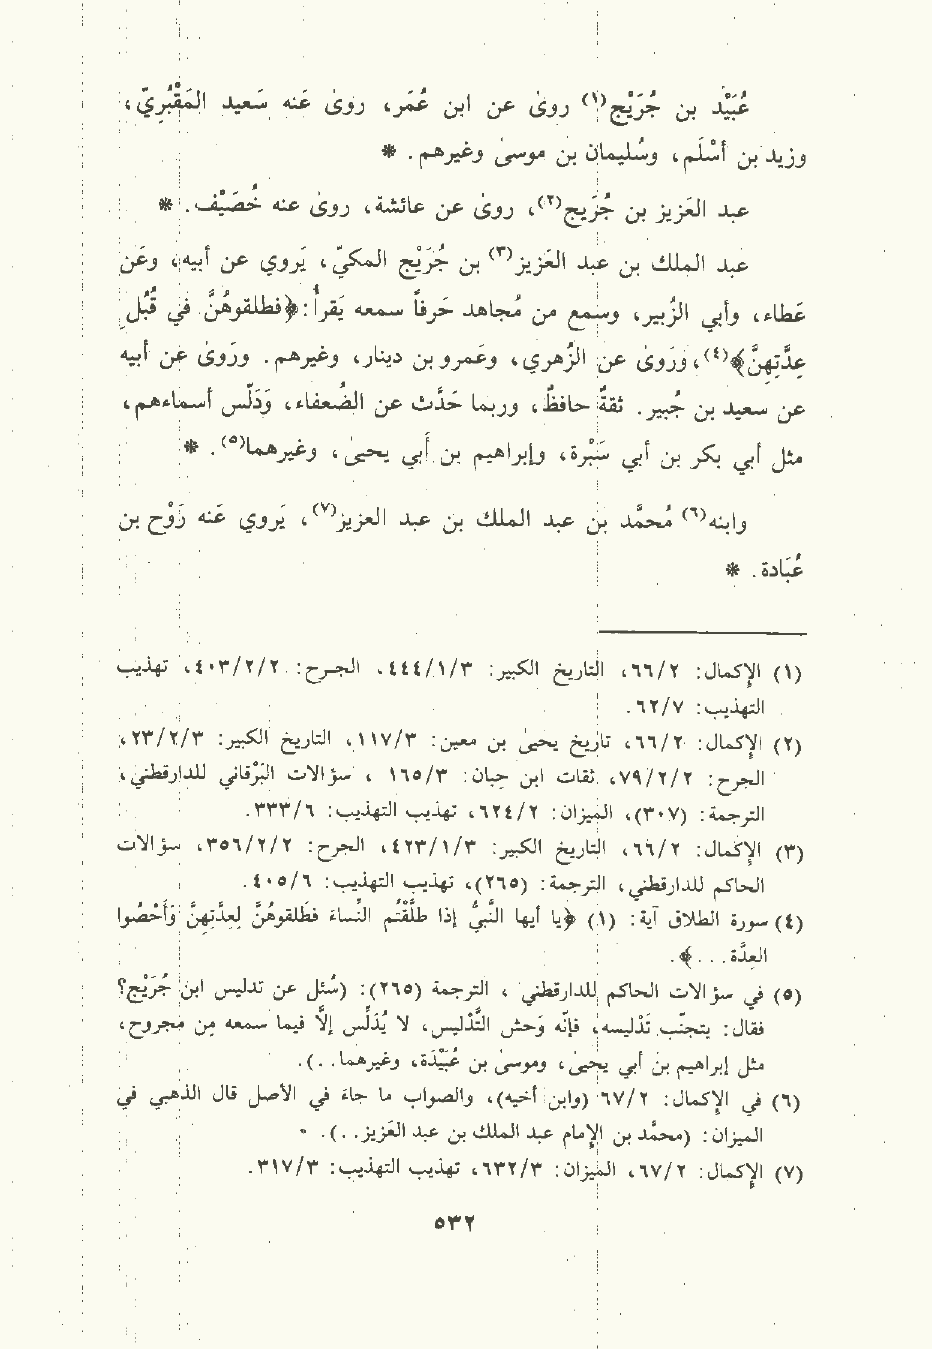 عُبَيْد بن جُرَيْج(١) روىٰ عن ابن عُمَر، روىٰ عَنه سَعيد المَقْبُرِيّ،
وزيد بن أسْلَم، وسُليمان بن موسىٰ وغيرهم. *
عبد العَزيز بن جُرَيج(٢)، روىٰ عن عائشة، روىٰ عنه خُصَيْف. *
عبد الملك بن عبد العَزيز(٣) بن جُرَيْج المكيّ، يَروي عن أبيه، وعَن
عَطاء، وأبي الزُبير، وسمع من مُجاهد حَرفاً سمعه يَقرأُ: ﴿فطلقوهُنَّ في قُبُلِ
عِدَّتِهِنَّ﴾(٤)، وَروىٰ عن الزُهري، وعَمرو بن دينار، وغيرهم. وَروىٰ عن أبيه
عن سعيد بن جُبير. ثقةٌ حافظٌ، وربما حَدَّث عن الضُعفاء، وَدَلَّس أسماءهم،
مثل أبي بكر بن أبي سَبْرة، وإبراهيم بن أبي يحيىٰ، وغيرهما(٥). *
وابنه(٦) مُحمَّد بن عبد الملك بن عبد العزيز(٧)، يَروي عَنه رَوْح بن
عُبَادة. *
(١) الإكمال: ٦٦/٢، التاريخ الكبير: ٤٤٤/١/٣، الجـرح: ٤٠٣/٢/٢، تهذيب
التهذيب: ٦٢/٧.
(٢) الإكمال: ٦٦/٢، تاريخ يحيىٰ بن معين: ١١٧/٣، التاريخ الكبير: ٢٣/٢/٣،
الجرح: ٧٩/٢/٢، ثقات ابن حِبان: ١٦٥/٣ ، سؤالات البَرْقاني للدارقطني،
الترجمة: (٣٠٧)، الميزان: ٦٢٤/٢، تهذيب التهذيب: ٣٣٣/٦.
(٣) الإكمال: ٦٦/٢، التاريخ الكبير: ٤٢٣/١/٣، الجرح: ٣٥٦/٢/٢، سؤالات
الحاكم للدارقطني، الترجمة: (٢٦٥)، تهذيب التهذيب: ٤٠٥/٦.
(٤) سورة الطلاق آية: (١) ﴿يا أيها النَّبيُّ إذا طلَّقْتُم النِّساءَ فطَلقوهُنَّ لِعدَّتِهنَّ وَأَحْصُوا
العِدَّة...﴾.
(٥) في سؤالات الحاكم للدارقطني ، الترجمة (٢٦٥): (سُئل عن تدليس ابن جُرَيْج؟
فقال: يتجنّب تَدْليسه، فإنّه وَحش التَّدْليس، لا يُدَلِّس إلاّ فيما سمعه مِن مجروح،
مثل إبراهيم بن أبي يحيىٰ، وموسىٰ بن عُبَيْدَة، وغيرهما..).
(٦) في الإكمال: ٦٧/٢ (وابن أخيه)، والصواب ما جاءَ في الأصل قال الذهبي في
الميزان: (محمَّد بن الإمام عبد الملك بن عبد العَزيز..).
(٧) الإكمال: ٦٧/٢، الميزان: ٦٣٢/٣، تهذيب التهذيب: ٣١٧/٣.
٥٣٢